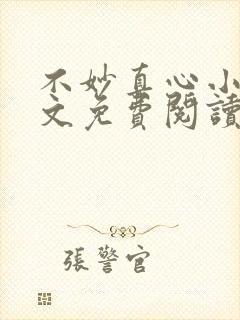 不妙真心小
文免費閱讀
張警官